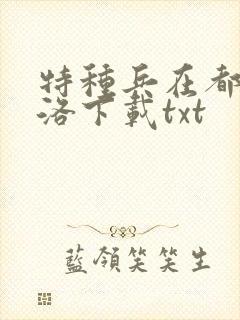 特種兵在都
洛下載txt
藍領笑笑生